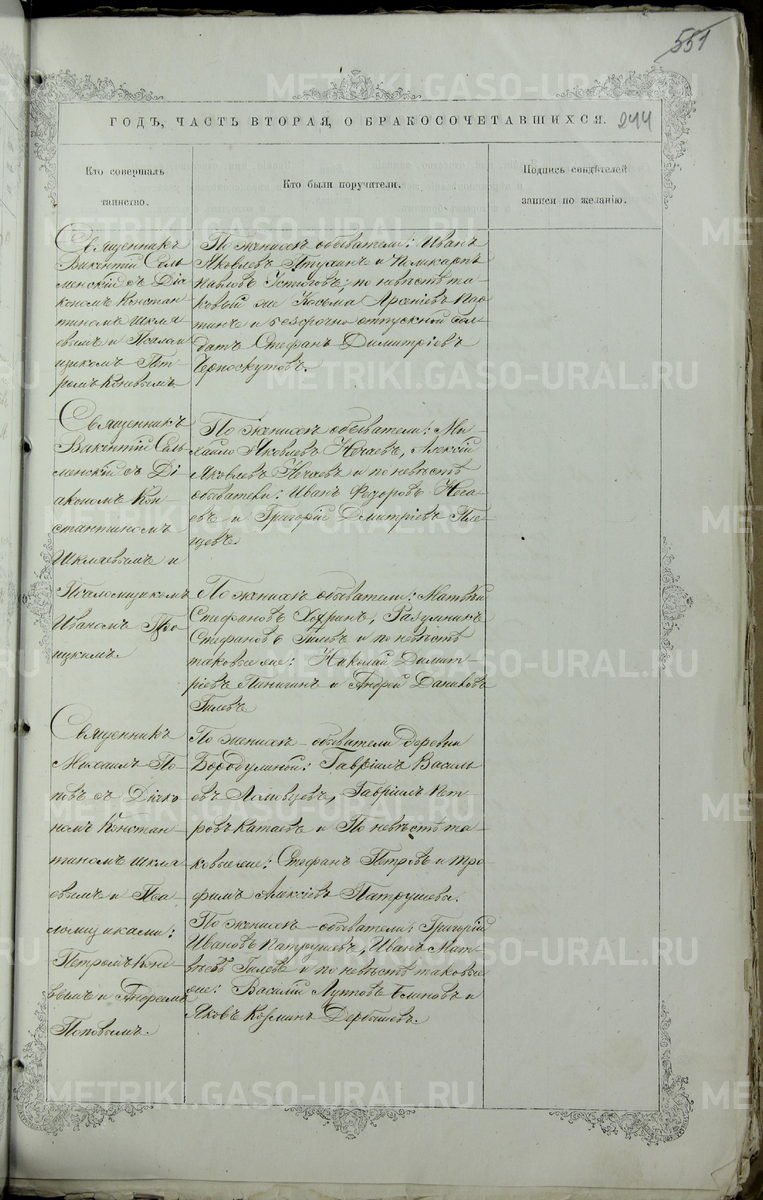 551
ГОДЪ, ЧАСТЬ ВТОРАЯ, О БРАКОСОЧЕТАВШИХСЯ.
244
Кто совершалъ
таинство.
Кто были поручители.
Подпись свидѣтелей
записи по желанію.
Священникъ
Викентій Сель-
менскій съ Діа-
кономъ Констан-
тиномъ Шкля-
евымъ и Псалом-
щикомъ Пет-
ромъ Коневымъ
По женихѣ обыватели: Иванъ
Яковлевъ и Поликарпъ
Павловъ Устюговъ; по невѣстѣ та-
ковый же Косьма Арсеніевъ
и безсрочно отпускной сол-
датъ Стефанъ Димитріевъ
Черноскутовъ.
Священникъ
Викентій Сель-
менскій съ Ді-
акономъ Кон-
стантиномъ
Шкляевымъ и
Псаломщикомъ
Иваномъ
По женихѣ обыватели: Ми-
хаило Яковлевъ Нечаевъ, Алексій
Яковлевъ Нечаевъ и по невѣстѣ
обыватели: Иванъ Ѳедоровъ
и Григорій Дмитріевъ
По женихѣ обыватели: Матвѣй
Стефановъ Хохринъ, Разумникъ
Стефановъ Гилевъ и по невѣстѣ
таковые же: Николай Димит-
ріевъ Паньшинъ и Андрей Даниловъ
Гилевъ
Священникъ
Михаилъ По-
повъ съ Діако-
номъ Констан-
тиномъ Шкля-
евымъ и Пса-
ломщиками:
Петромъ Коне-
вымъ и Андреемъ
Поповымъ.
По женихѣ – обыватели деревни
Бородулиной: Гавріилъ Василь-
евъ Гавріилъ Пет-
ровъ Катаевъ и По невѣстѣ та-
ковые же: Стефанъ Петровъ и Тро-
фимъ Алексіевъ Патрушевы.
По женихѣ – обыватели: Григорій
Ивановъ Патрушевъ, Иванъ Мат-
вѣевъ Гилевъ и по невѣстѣ таковые
же: Василій Лупповъ Блиновъ и
Яковъ Козминъ Дербышевъ.
METRIKI.GASO-URAL.RU